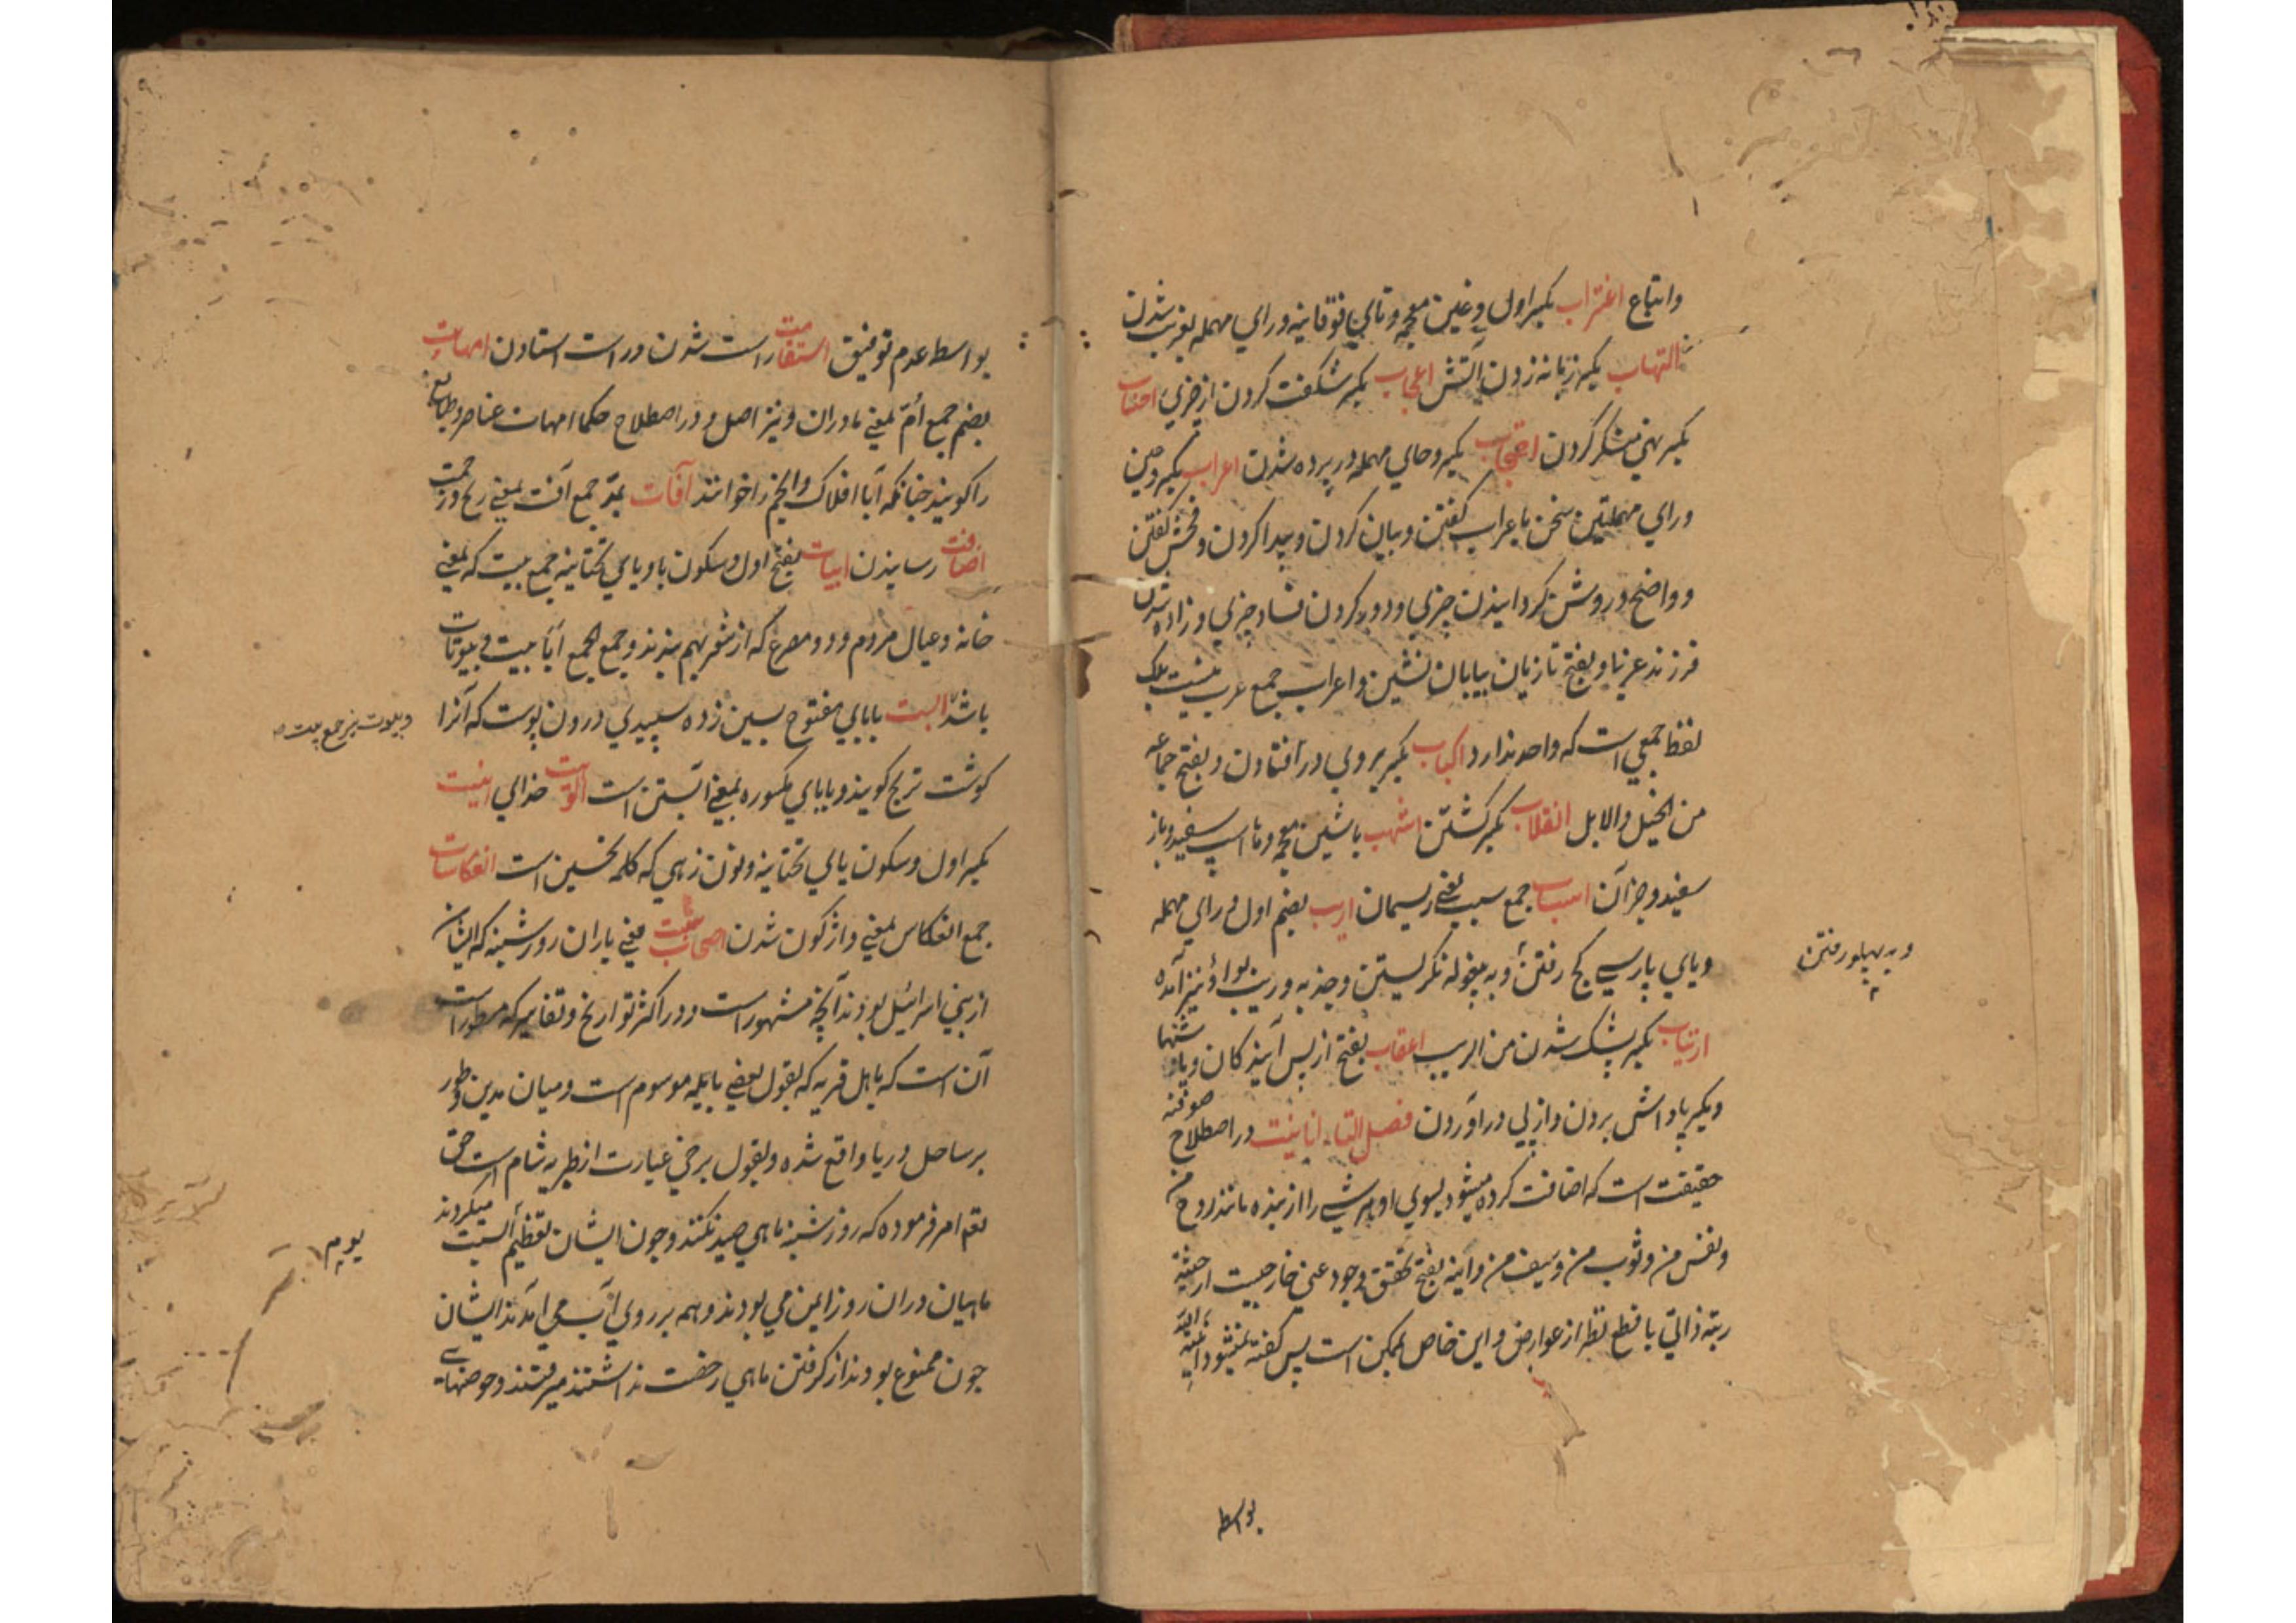 واتباع اغتراب بکسر اول و غین معجمه و تای فوقانیه و رای مهمله غریب شدن
التهاب بکسر زبانه زدن آتش اعجاب بکسر شکفت کردن از چیزی
بکسر احتجاب بکسر و حای مهمله در پرده شدن اعراب بکسر و عین
و رای مهملتین سخن با اعراب کفتن و بیان کردن و پیدا کردن و فحش کفتن
و واضح و روشن کردانیدن چیزی و دور کردن فساد چیزی و زاده شدن
فرزند عربی و بفتح تازیان بیابان نشین و اعراب جمع عرب نیست بلک
لفظ جمعی است که واحد ندارد اکباب بکسر بروی در افتادن و بفتح جماعه
من الخیل و الابل انقلاب بکسر کشتن اشهب با شین معجمه و ها اسپ سفید و باز
سفید و جز آن اسباب جمع سبب یعنی ریسمان اریب بضم اول و رای مهمله
و یای پارسی کج رفتن و به پیغوله نکریستن و جذبه وریب بواو نیز آمده
و به پهلو رفتن
ارتیاب بکسر بشک شدن من الریب اعقاب بفتح از پس آیندکان و پاشنها
و بکسر پاداش بردن و از پی در آوردن فصل التاء انانیت در اصطلاح صوفیه
حقیقت است که اضافت کرده میشود بسوی او هر شی را از بنده مانند روح من
و نفس من و ثوب من و سیف من و انیه بفتح تحقق وجود عینی خارجیست از حیثیه
رتبه ذاتی با قطع نظر از عوارض و این خاص بممکن است پس کفته نمیشود
بواسطه
بواسطه عدم توفیق استقامت راست شدن و راست استادن امهات
بضم جمع اُمّ بمعنی مادران و نیز اصل و در اصطلاح حکما امهات عناصر و طبایع
را کویند چنانکه آبا افلاک و انجم را خوانند آفات بمد جمع آفت بمعنی رنج و زحمت
اضافت رسانیدن ابیات بفتح اول و سکون با و یای تحتانیه جمع بیت که بمعنی
خانه و عیال مردم و دو مصرع که از شعر بهم بندند و جمع الجمع ابیات و بیوتات
باشد البت بابای مفتوح بسین زده سپیدی درون پوست که آنرا
و بیوت نیز جمع بیت
کوشت ترنج کویند و بابای مکسوره بمعنی آبستن است الوهیت خدای اینت
بکسر اول و سکون یای تحتانیه و نون زهی که کلمه تحسین است انعکاسات
جمع انعکاس بمعنی واژکون شدن اصحاب سبت یعنی یاران روز شنبه که ایشان
از بنی اسرائیل بودند آنچه مشهور است و در اکثر تواریخ و تفاسیر که مسطور است
آن است که باهل قریه که بقول بعضی بایله موسوم است و میان مدین و طور
بر ساحل دریا واقع شده و بقول برخی عبارت از طبریه شام است حق
تع امر فرموده که روز شنبه ماهی صید نکنند و چون ایشان تعظیم السبت میکردند
یوم
ماهیان دران روز ایمن می بودند و همه بر روی آب می آمدند ایشان
چون ممنوع بودند از کرفتن ماهی رخصت نداشتند میرفتند و حوضهای